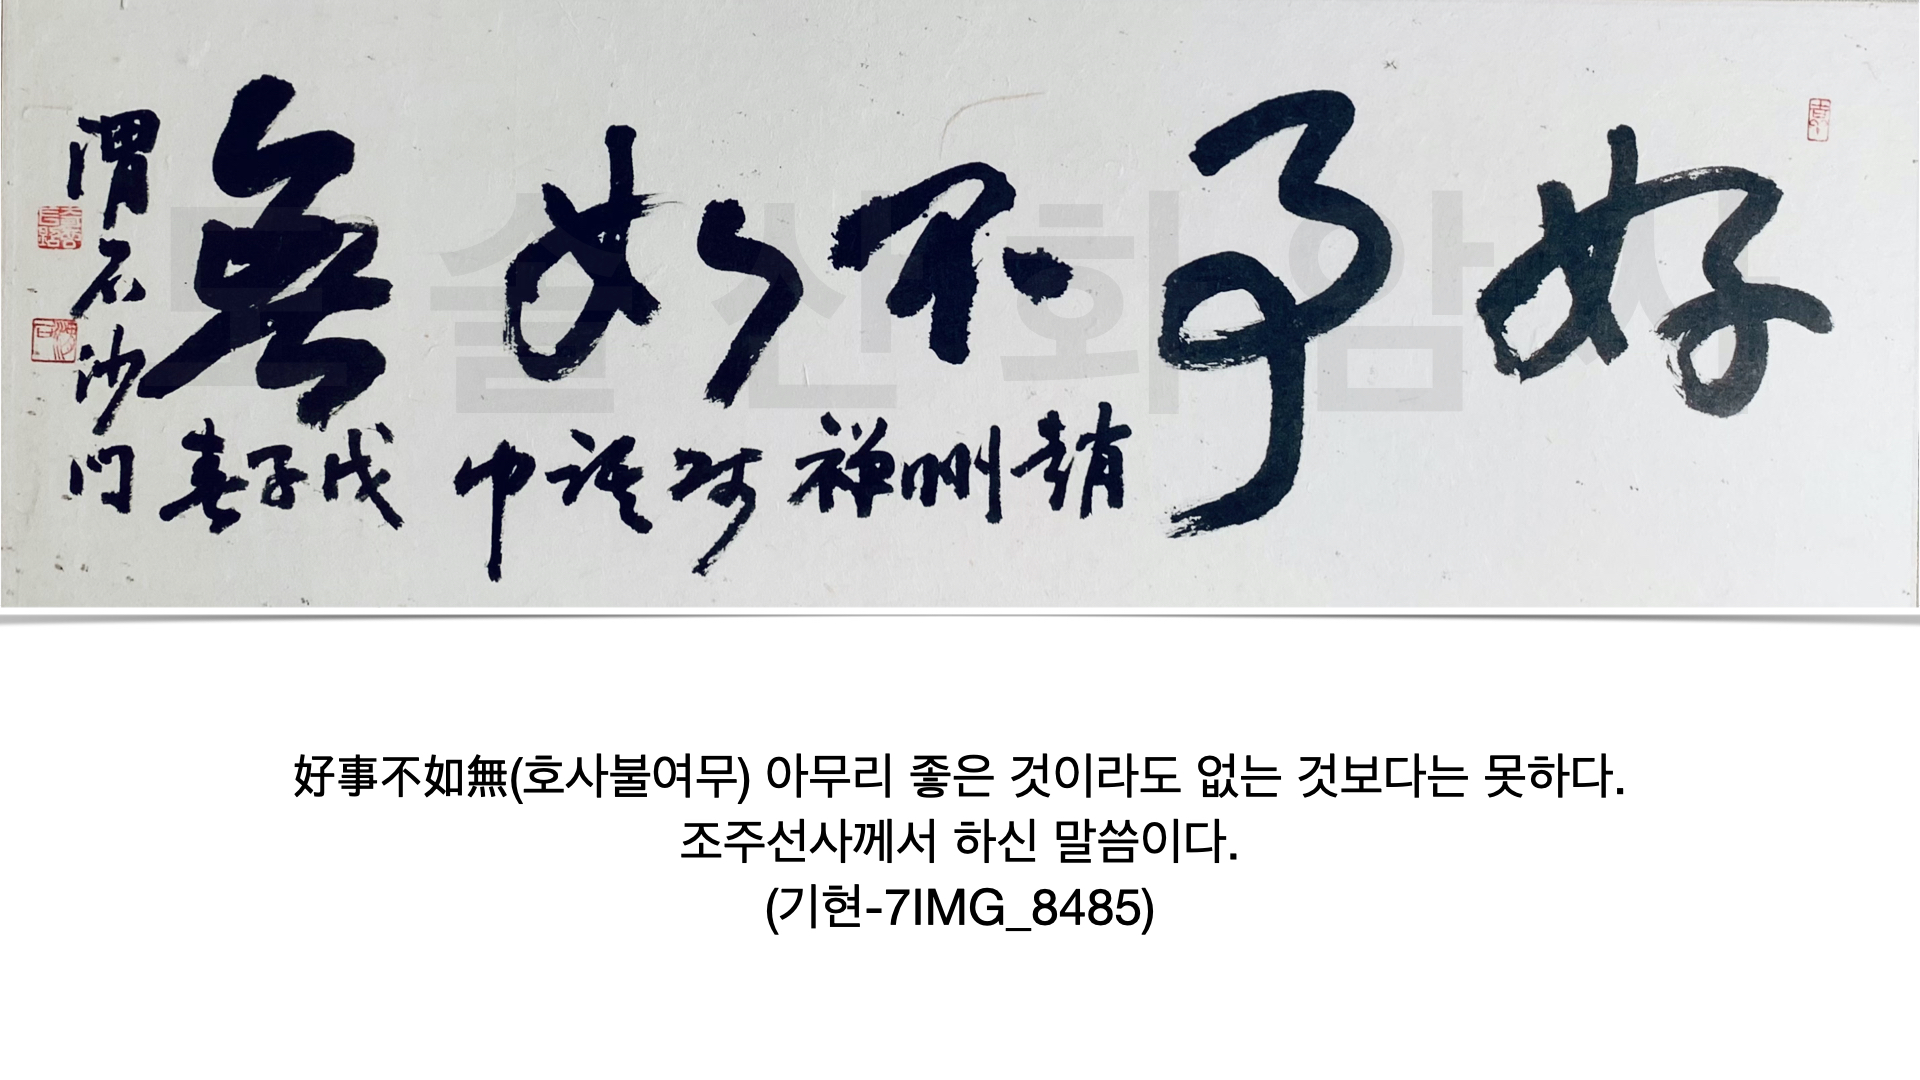 好事不如無
趙州禅師語中
戊子春
渭石沙门
모술산화암사
好事不如無(호사불여무) 아무리 좋은 것이라도 없는 것보다는 못하다.
조주선사께서 하신 말씀이다.
(기현-7IMG_8485)